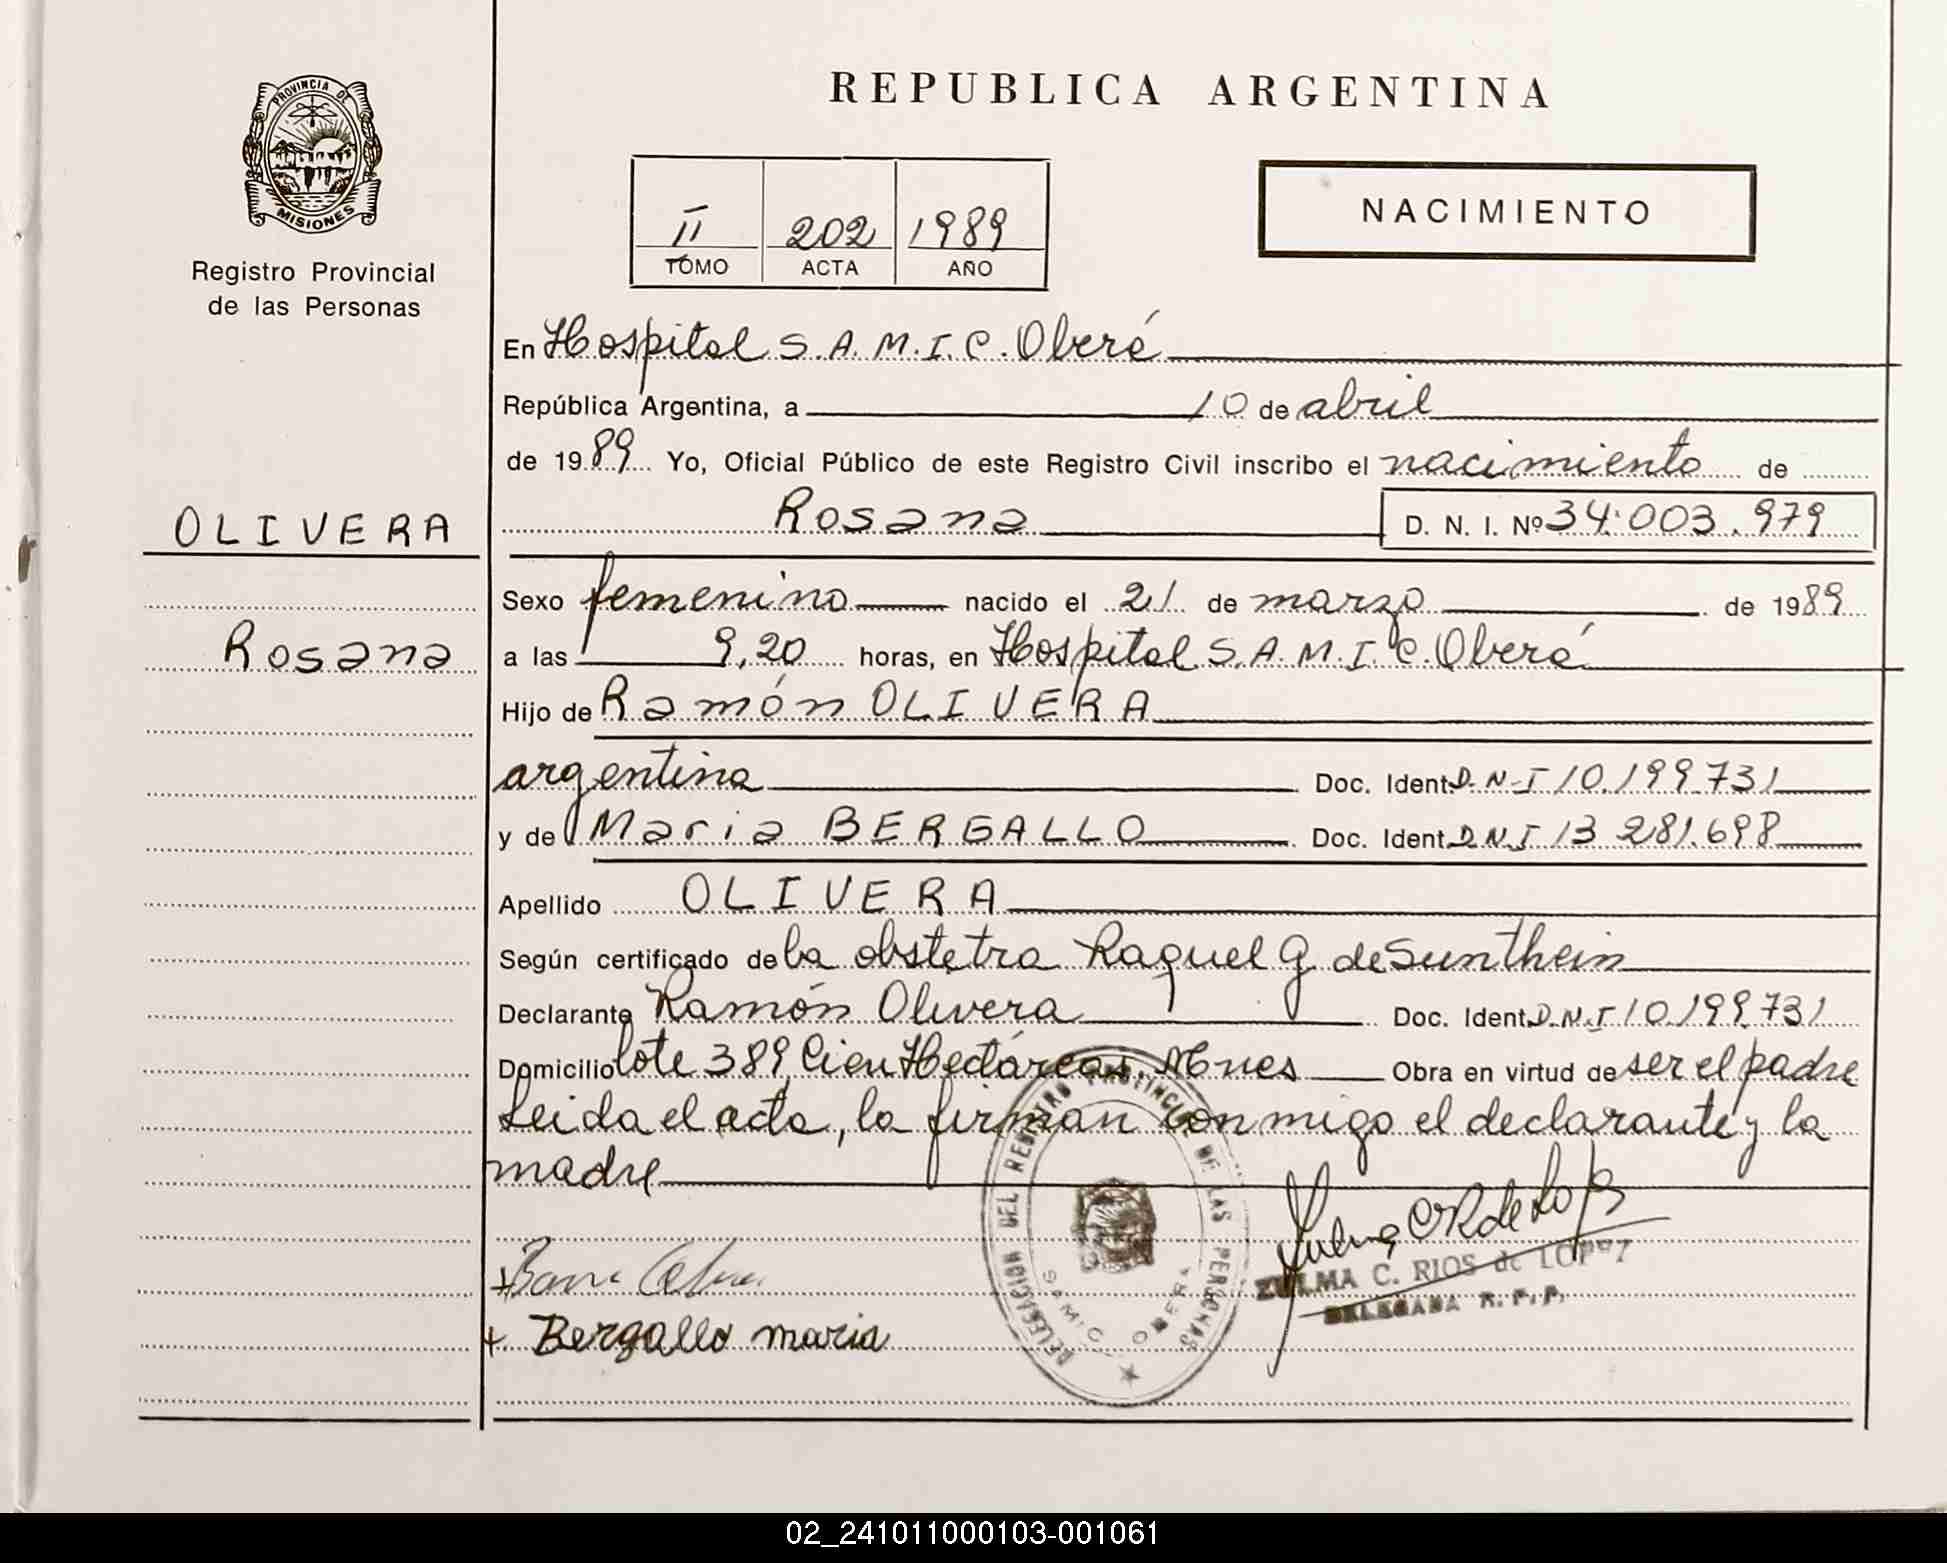 REPUBLICA ARGENTINA
PROVINCIA DE
MISIONES
Registro Provincial
de las Personas
II 202 1989
TOMO ACTA AÑO
NACIMIENTO
En Hospital S.A.M.I.C. Oberá
República Argentina, a 10 de abril
de 1989 Yo, Oficial Público de este Registro Civil inscribo el nacimiento de
OLIVERA
Rosana D. N. I. Nº 34.003.979
Sexo femenino nacido el 21 de marzo de 1989
Rosana
a las 9,20 horas, en Hospital S.A.M.I.C. Oberá
Hijo de Ramón OLIVERA
argentina Doc. Ident. D.N.I 10.199.731
y de Maria BERGALLO Doc. Ident. D.N.I 13 281.698
Apellido OLIVERA
Según certificado de la obstetra Raquel G de Sunthein
Declarante Ramón Olivera Doc. Ident. D.N.I 10.199.731
Domicilio lote 389 Cien Hectáreas. Mnes Obra en virtud de ser el padre
Leida el acta, la firman conmigo el declarante y la
madre
DELEGACION DEL REGISTRO PROVINCIAL DE LAS PERSONAS
SAMIC OBERA
ZULMA C. RIOS de LOPEZ
DELEGADA R. P. P.
Bergallo maria
02_241011000103-001061